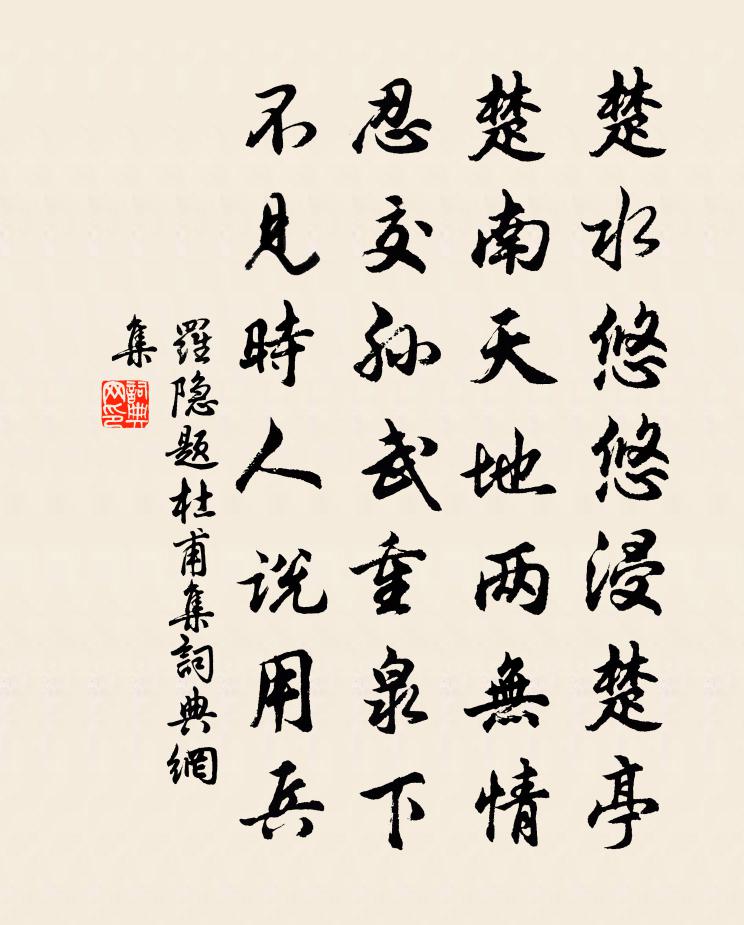 楚水悠悠浸楚亭
楚南天地两無情
忍交孙武重泉下
不見時人说用兵
羅隐题杜甫集詞典網
集
詞典
网